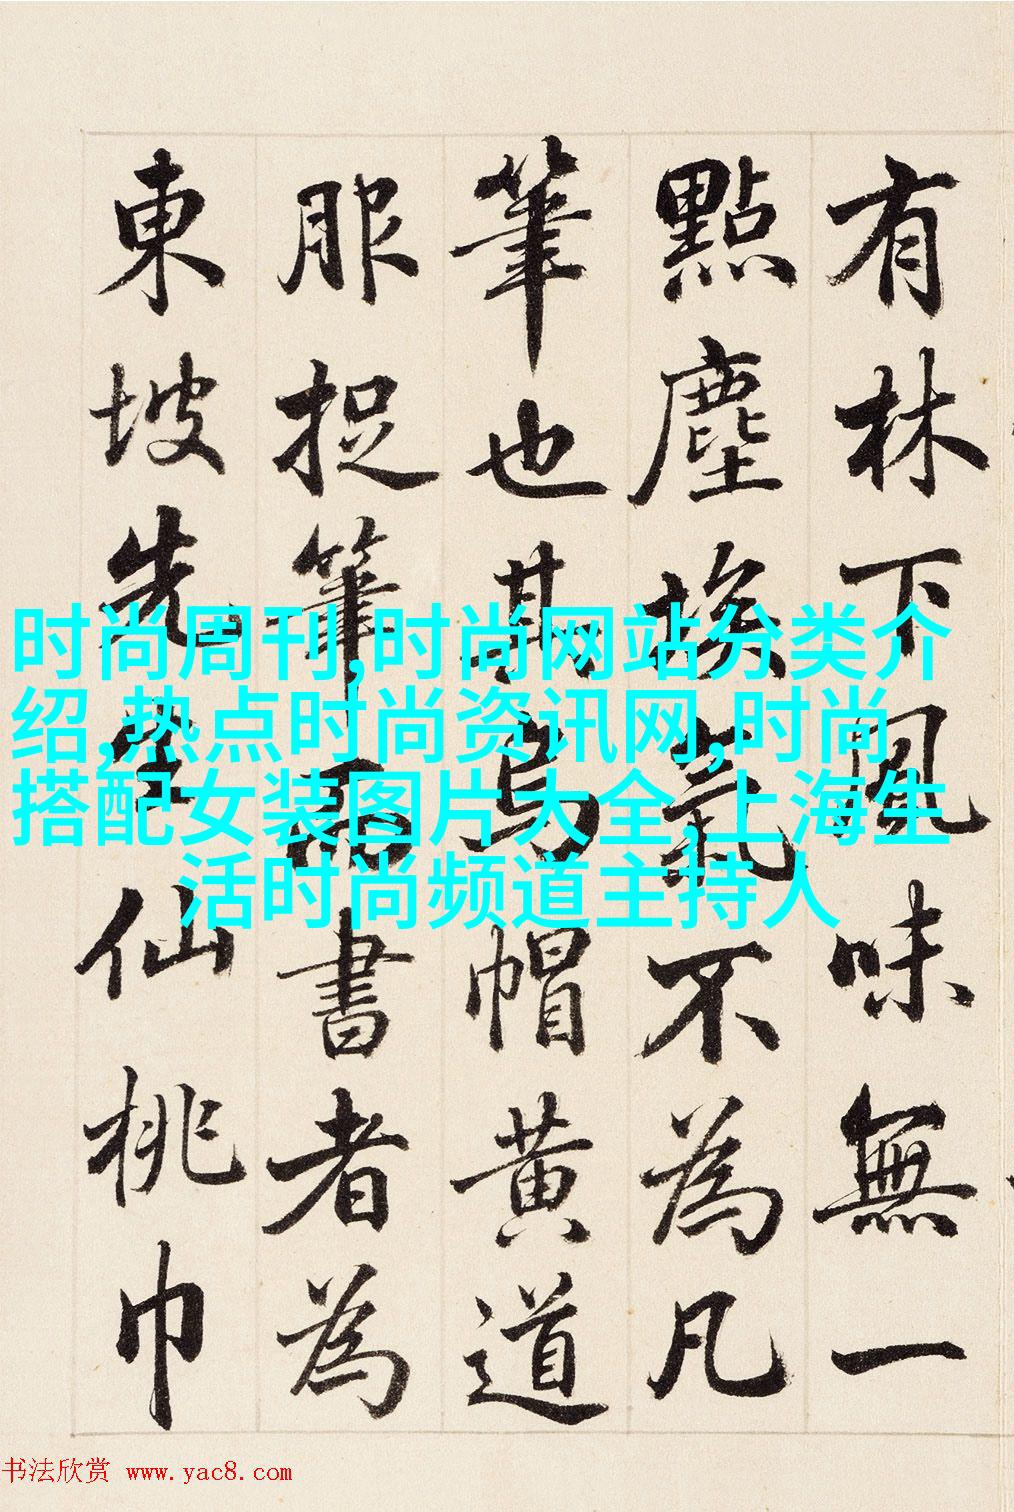 有林下風味無一
點塵埃氣不為凡
筆也其烏帽黃道
服捉筆而書者為
東坡先生仙桃巾
时尚周刊,时尚网站分类介
绍,热点时尚资讯网,时尚
搭配女装图片大全,上海生
活时尚频道主持人
书法欣赏 www.yac8.com